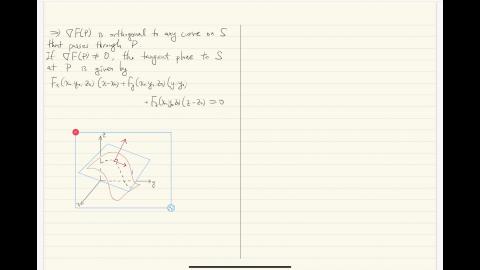 ⇒ ∇F(P) is orthogonal to any curve on S
that passes through P.
If ∇F(P) ≠ 0, the tangent plane to S
at P is given by
Fx(x₀,y₀,z₀)(x-x₀)+Fy(x₀,y₀,z₀)(y-y₀)
+Fz(x₀,y₀,z₀)(z-z₀)=0
z
y
x